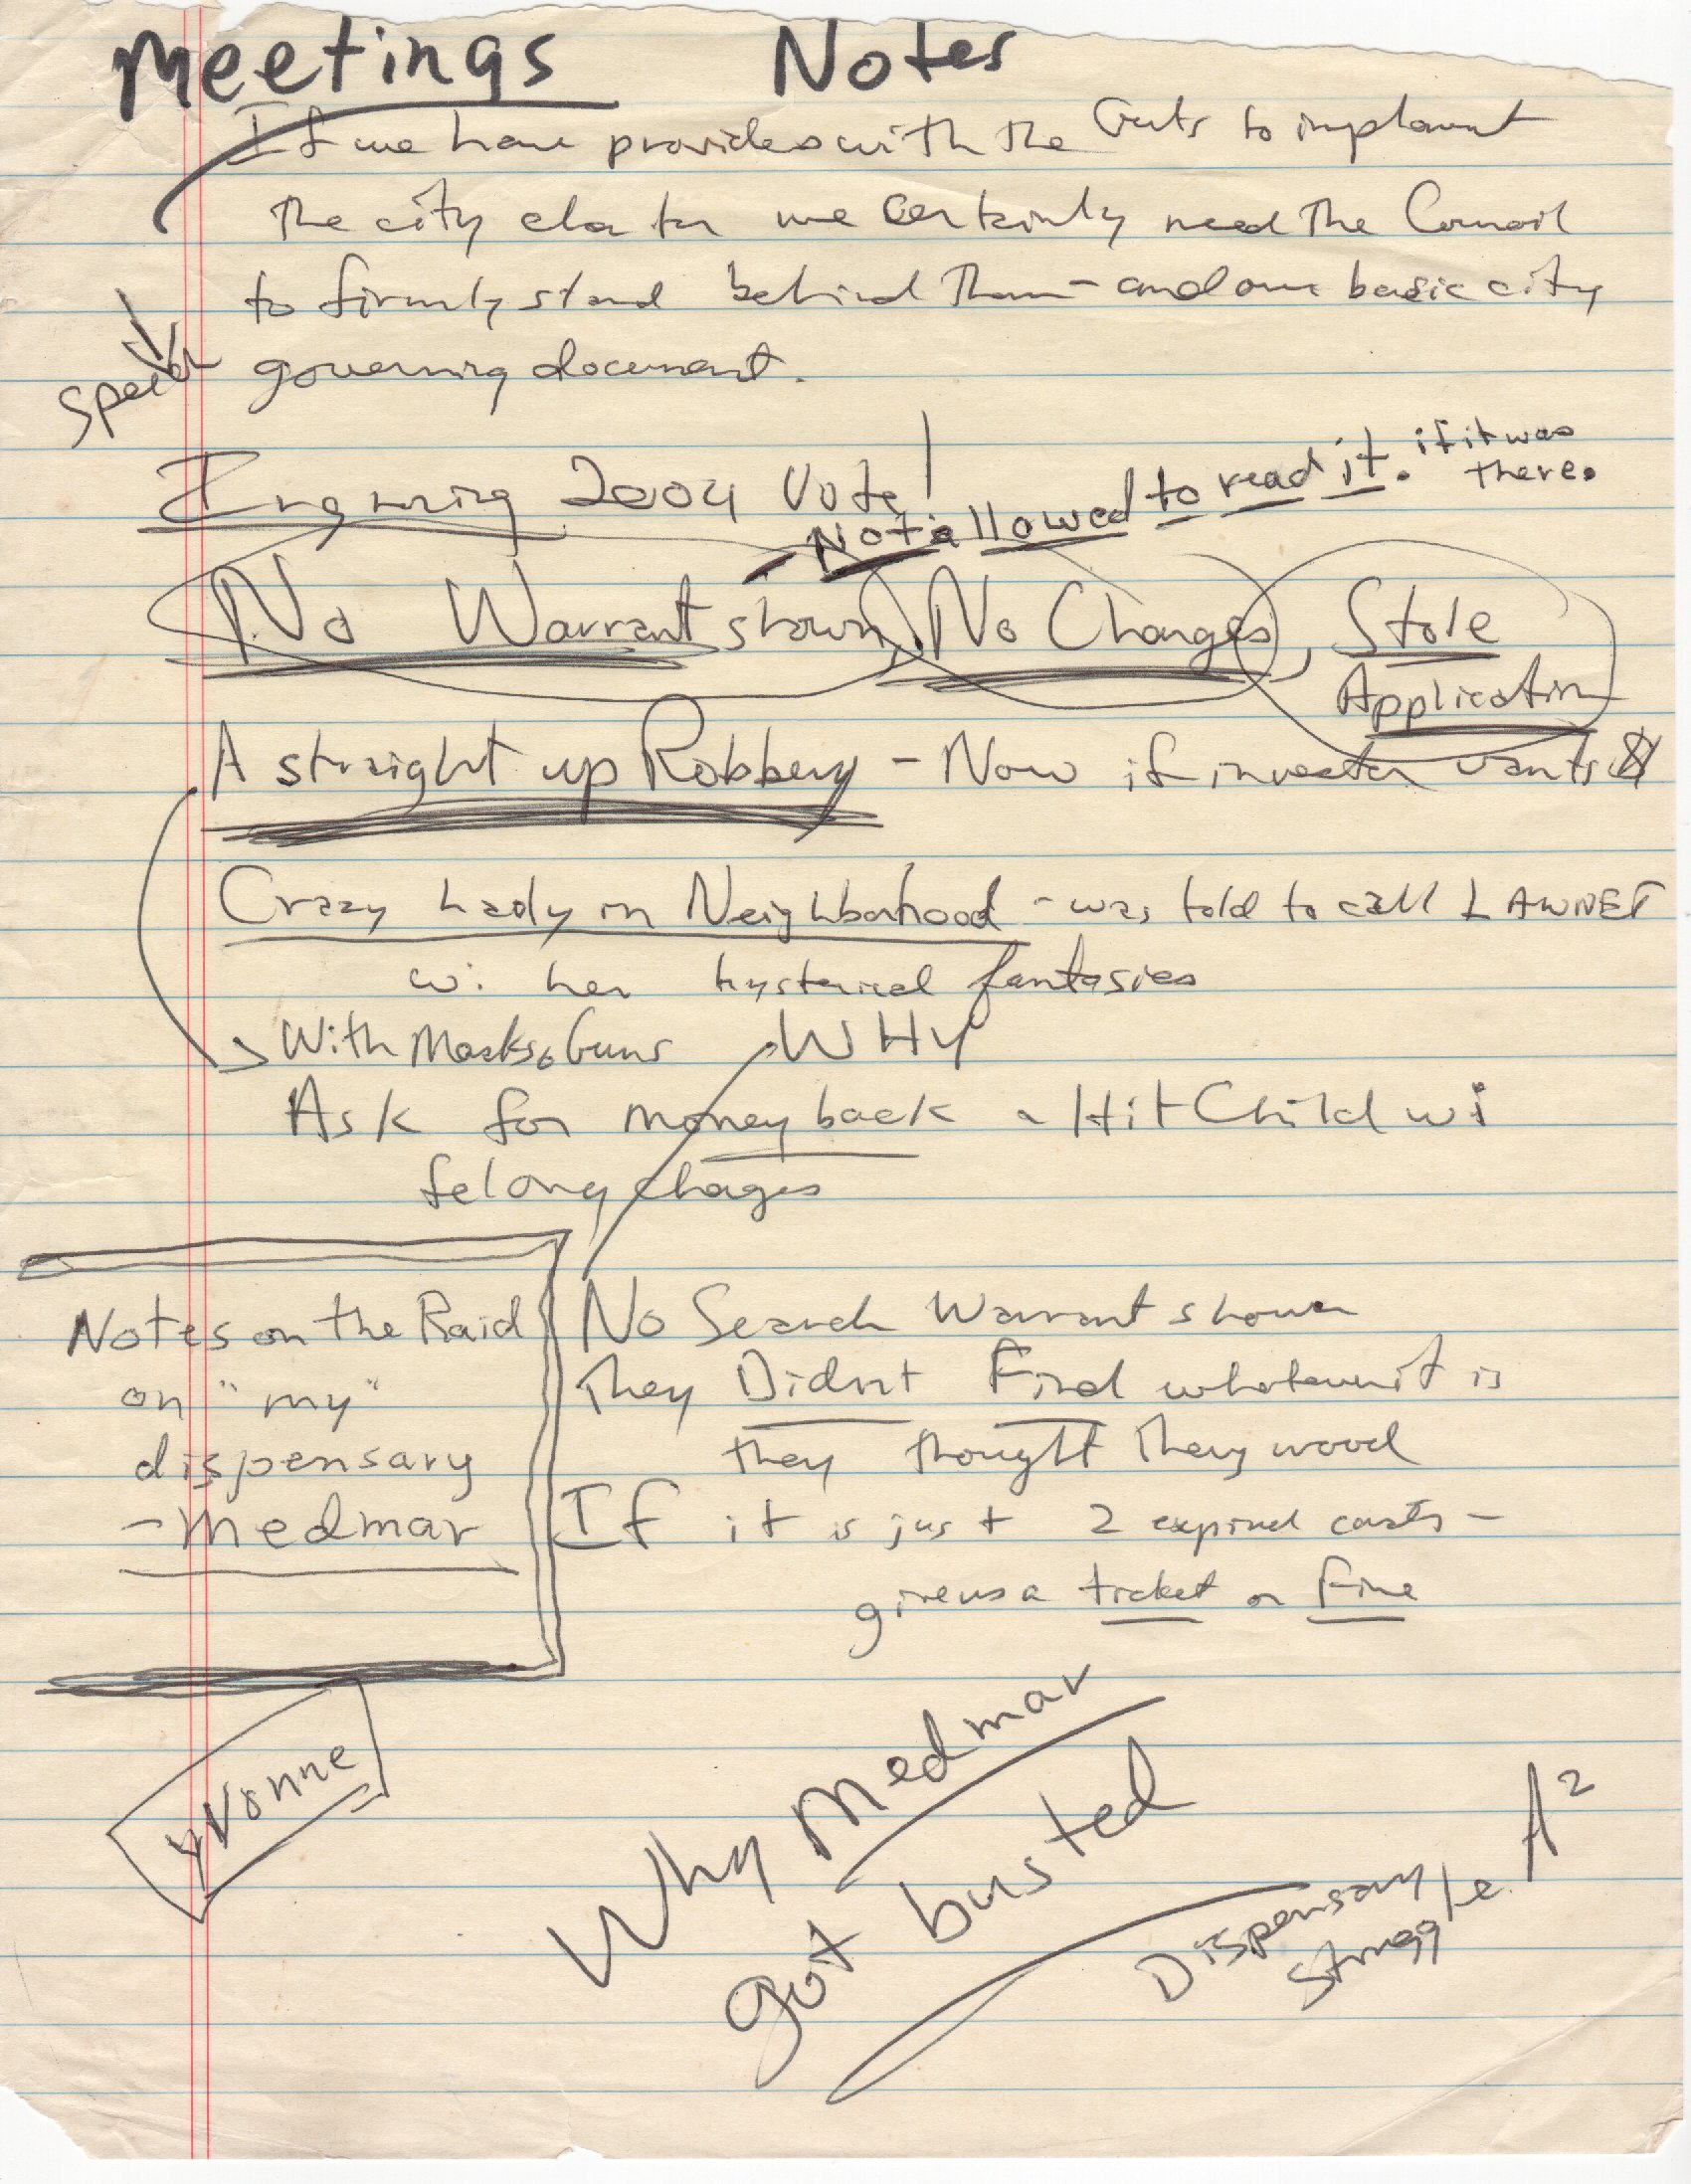 Meetings Notes
If we have provides with the Guts to implement
the city charter we certainly need the Council
to firmly stand behind them - and our basic city
governing document.
Speech
Ingnoring 2004 Vote!
- Not allowed to read it. if it was
there.
No Warrant shown, No Charges, Stole
Application
A straight up Robbery - Now if investor wants $
Crazy Lady in Neighborhood - was told to call LAWNET
w: her hysterical fantasies
With Masks & Guns WHY
Ask for money back - Hit Child wi
felony chages
Notes on the Raid
on "my"
dispensary
- Medmar
No Search Warrant shown
They Didnt Find whatever it is
they thought They wood
If it is just 2 expired cards -
give us a ticket or Fine
Yvonne
Why Medmar
got busted
Dispensary
Struggle A²